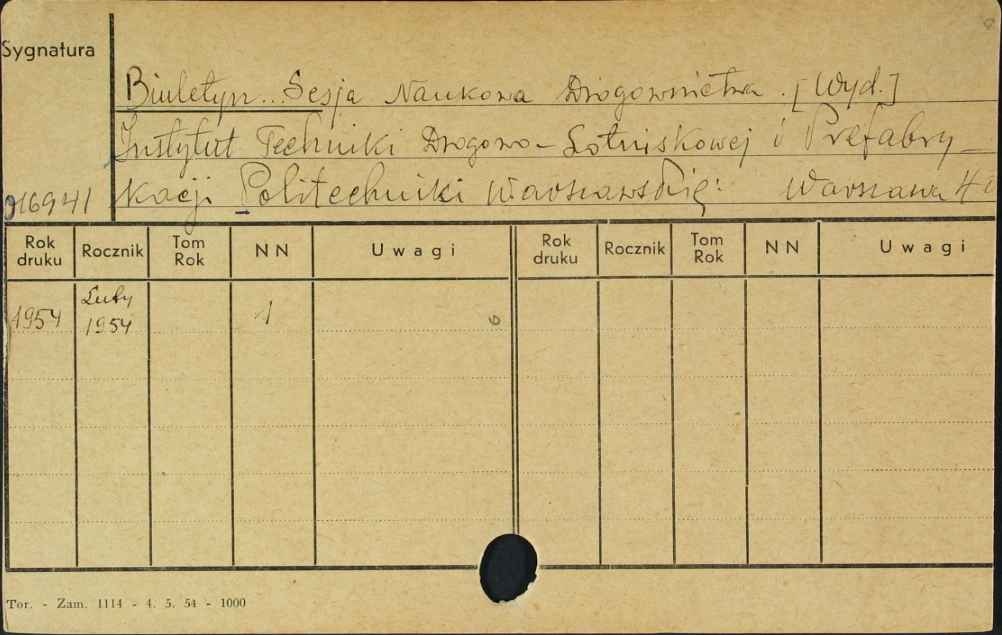 Sygnatura
Biuletyn... Sesja Naukowa Drogownictwa. [Wyd.]
Instytut Techniki Drogowo-Lotniskowej i Prefabry-
016941 kacji Politechniki Warszawskiej. Warszawa 4°
Rok druku Rocznik Tom Rok NN Uwagi Rok druku Rocznik Tom Rok NN Uwagi
1954 Luty 1954 1 6
Tor. - Zam. 1114 - 4. 5. 54 - 1000